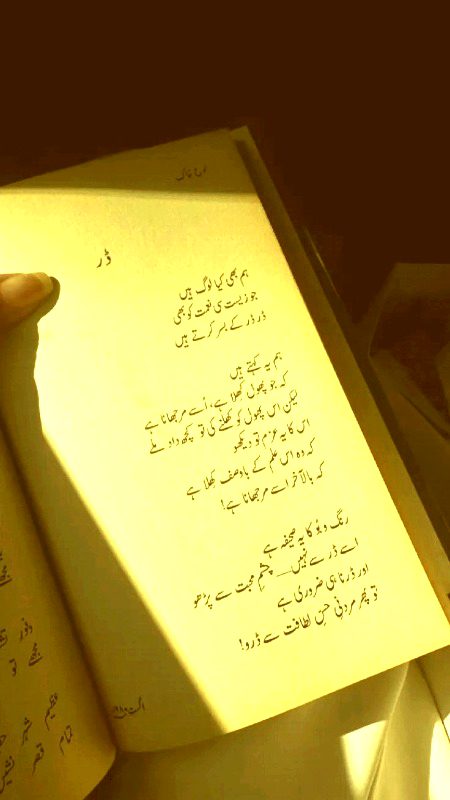 لوحِ خاک
ڈر
ہم بھی کیا لوگ ہیں
جو زیست سی نعمت کو بھی
ڈر ڈر کے بسر کرتے ہیں
ہم یہ کہتے ہیں
کہ جو پھول کھلا ہے، اُسے مرجھانا ہے
لیکن اس پھول کو کھلنے کی تو کچھ داد ملے
اس کا یہ عزم تو دیکھو
کہ وہ اس علم کے باوصف کھلا ہے
کہ بالآخر اسے مرجھانا ہے!
رنگ و بُو کا یہ صحیفہ ہے
اسے ڈر سے نہیں__ چشمِ محبت سے پڑھو
اور ڈرنا ہی ضروری ہے
تو پھر مردنیِ حسِ لطافت سے ڈرو!
اگست ۱۹۸۰ء
تو